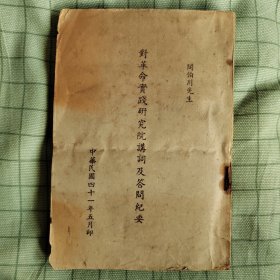 閻伯川先生
對革命實踐研究院講詞及答問紀要
中華民國四十一年五月印